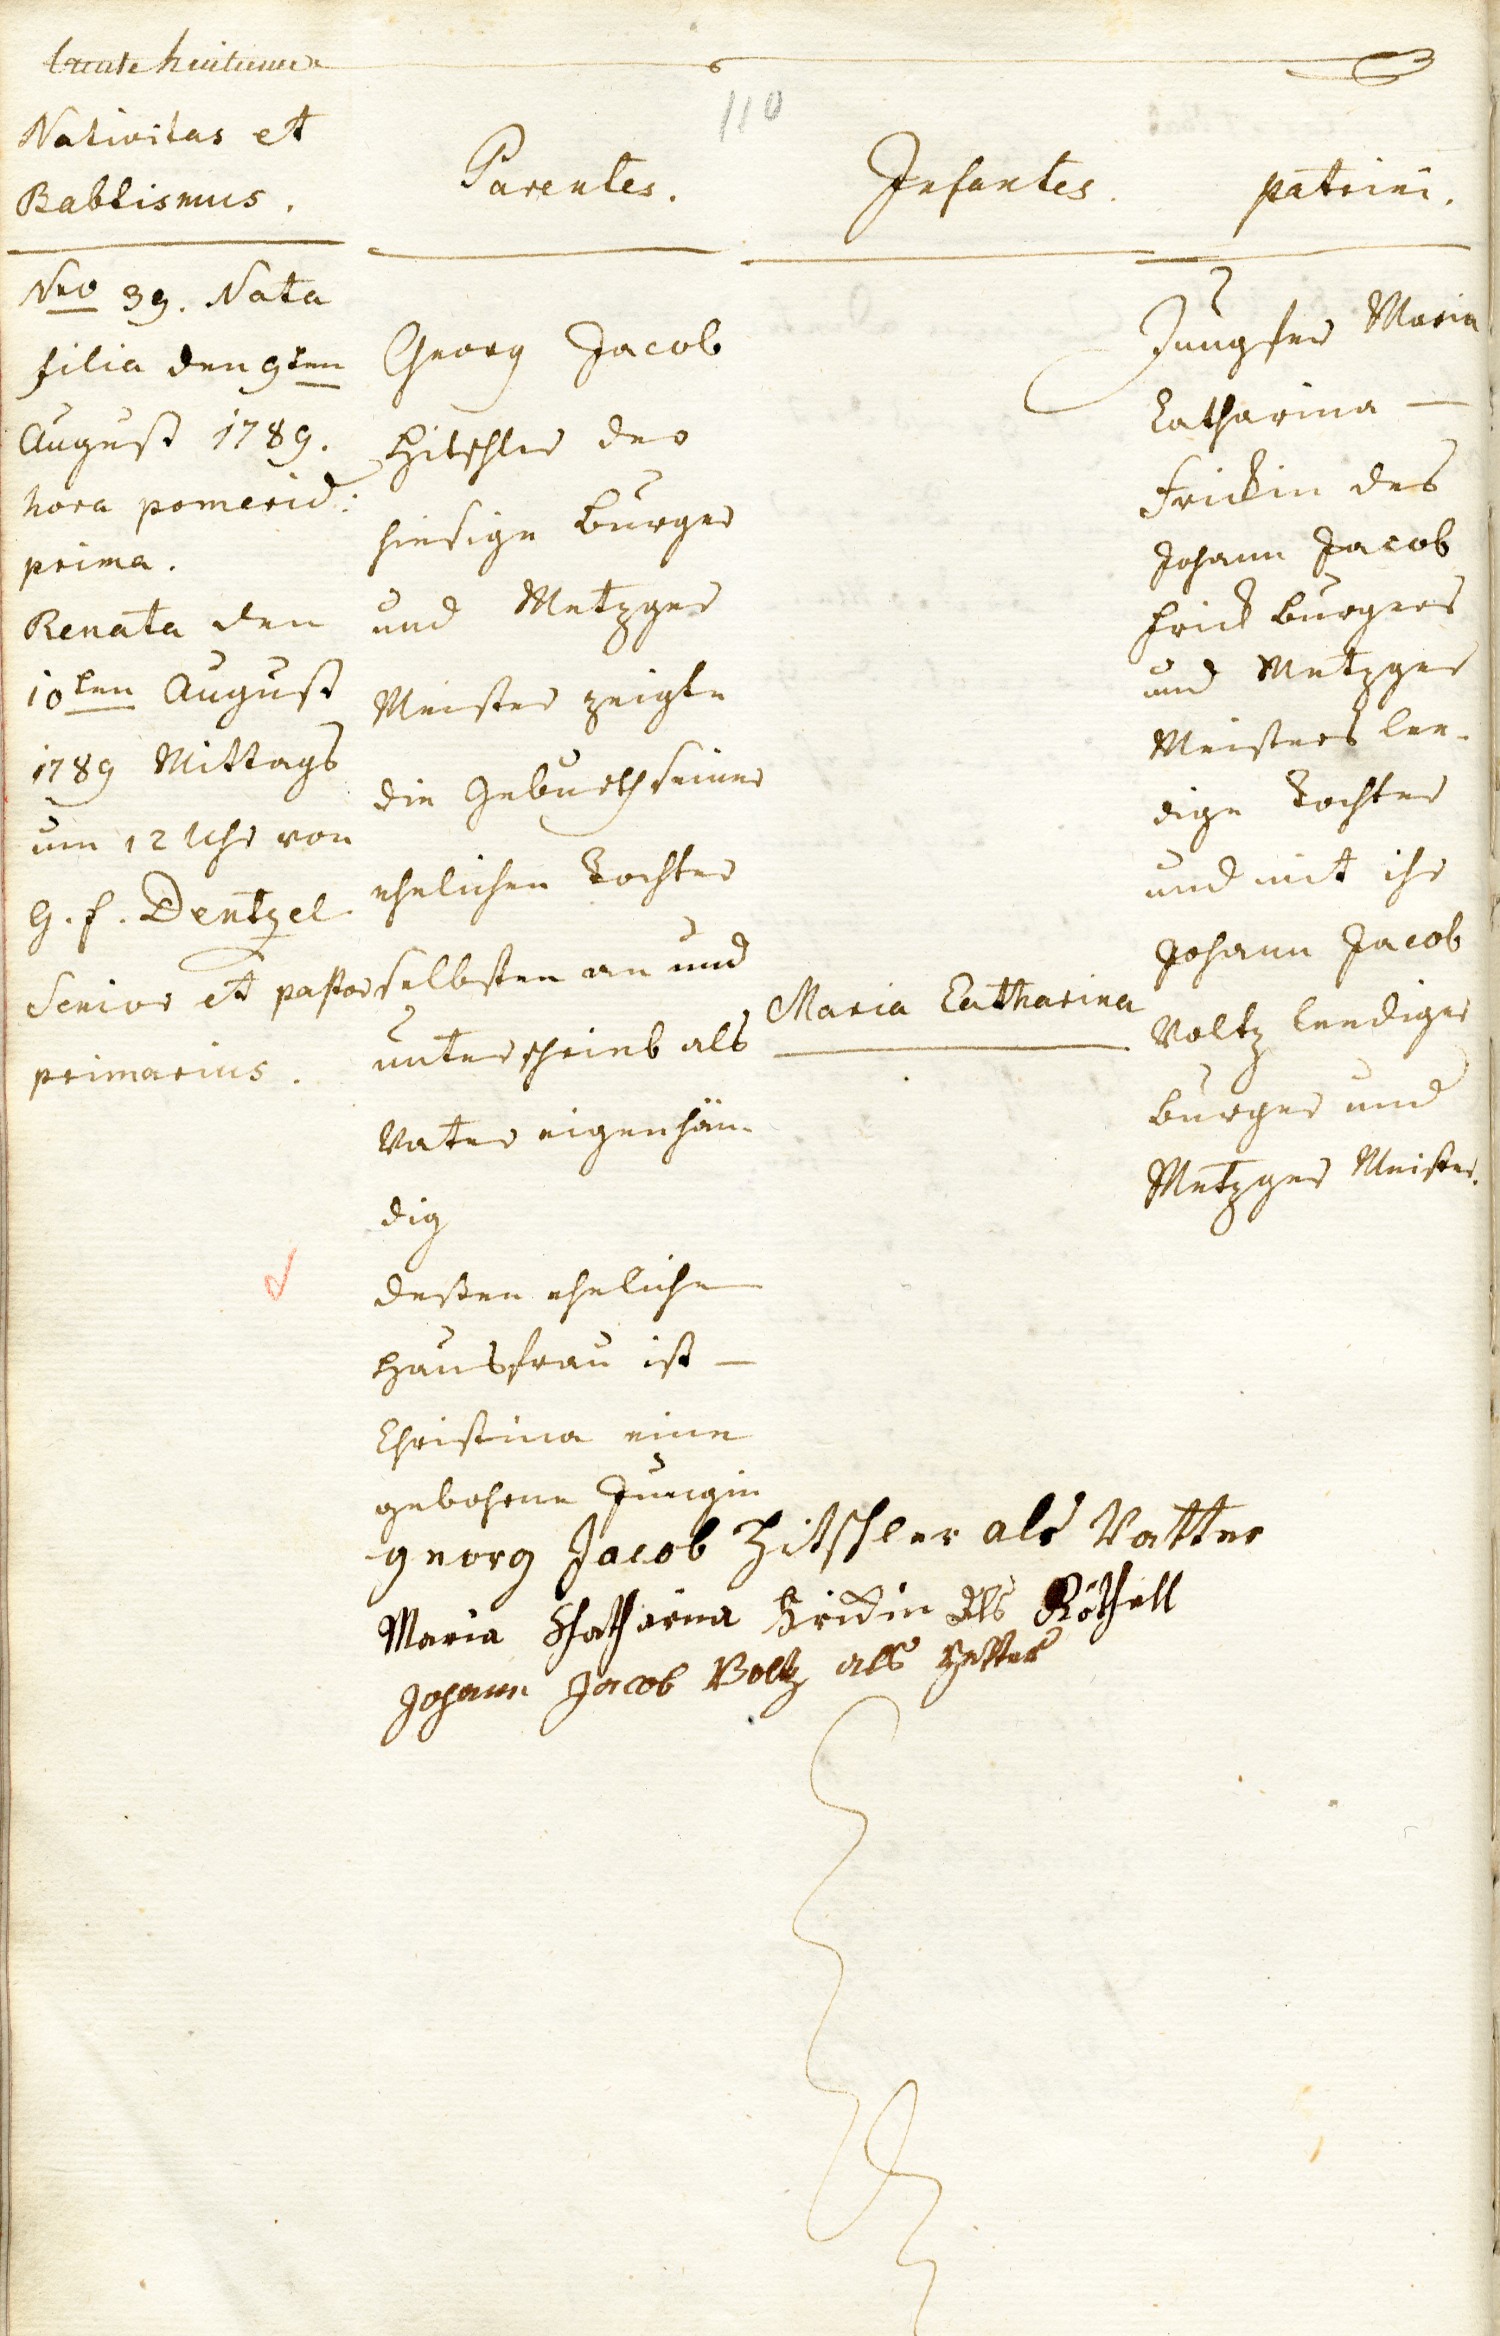 110
Nativitas et
Babtismus.
Nro 39. Nata
filia den 9ten
August 1789.
hora pomerid:
prima.
Renata den
10ten August
1789 Mittags
um 12 Uhr von
G. F. Dentzel
Senior et pastor
primarius.
Parentes.
Georg Jacob
Hitschler der
hiesige Burger
und Metzger
Meister zeigte
die Geburth seiner
ehelichen Tochter
selbsten an und
unterschrieb als
Vater eigenhän-
dig
deßen eheliche
Hausfrau ist —
Christina eine
gebohrne Jungin
Infantes.
Maria Catharina
patrini.
Jungfer Maria
Catharina —
Frickin des
Johann Jacob
Frick Burgers
und Metzger
Meisters lee-
dige Tochter
und mit ihr
Johann Jacob
Voltz leediger
Burger und
Metzger Meister.
georg Jacob Hitschler als Vatter
Maria Chatharina Frickin als Göthell
Johann Jacob Voltz als Pfetter